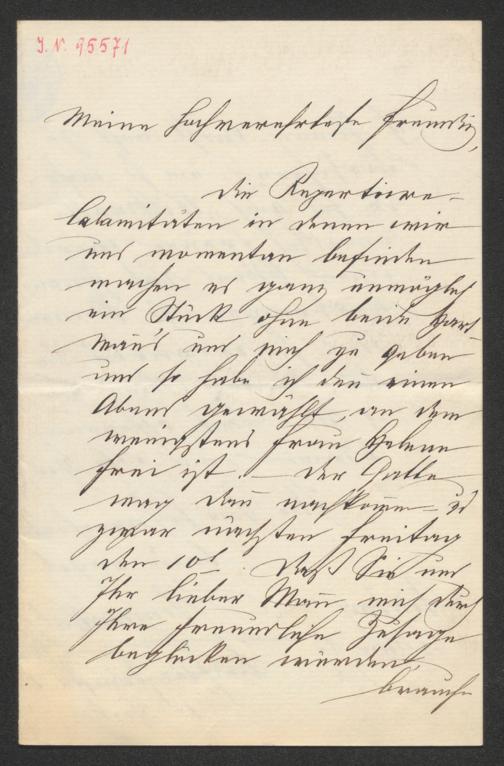 J. N. 95571
Meine hochverehrteste Freundin,
die Repertoire-
Calamitäten in denen wir
uns momentan befinden
machen es ganz unmöglich
ein Stück ohne beide Hart-
mann's und mich zu geben
und so habe ich den einen
Abend gewählt, an dem
wenigstens Frau Helene
frei ist. — Der Gatte
mag dann nachkommen — u.
zwar nächsten Freitag
den 10t. Daß Sie und
Ihr lieber Mann mich durch
Ihre freundliche Zusage
beglücken würden
brauche